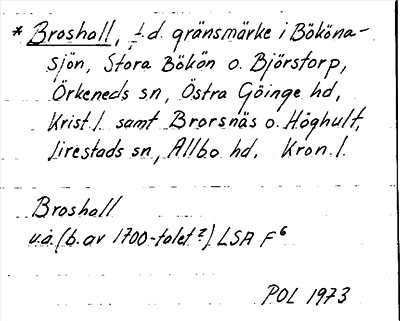 * Broshall, f.d. gränsmärke i Bököna-
sjön, Stora Bökön o. Björstorp,
Örkeneds sn, Östra Göinge hd,
Krist. l. samt Brorsnäs o. Höghult,
Lirestads sn, Allbo hd. Kron. l.
Broshall
u.å. (b. av 1700-talet?) LSA F6
POL 1973